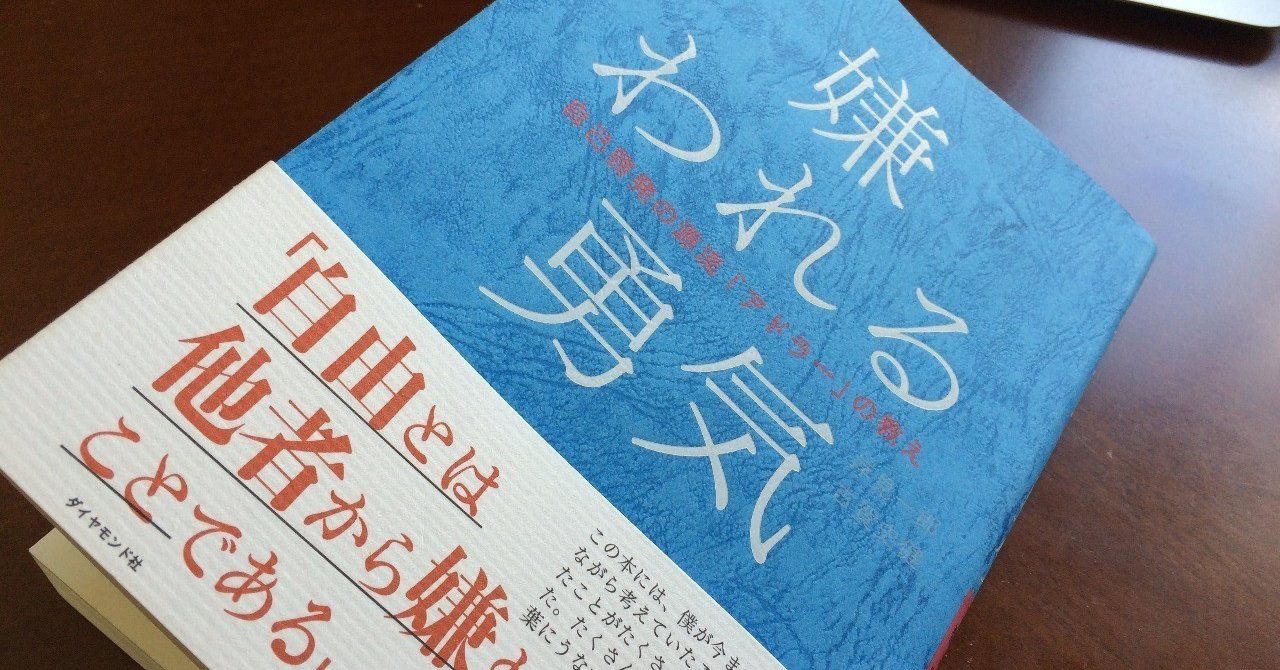 嫌われる勇気
自己啓発の源流「アドラー」の教え
「自由とは
他者から嫌
ことである
ダイヤモンド社
この本には、僕が今ま
ながら考えていた
たことがたくさ
た。たくさん
葉にうな